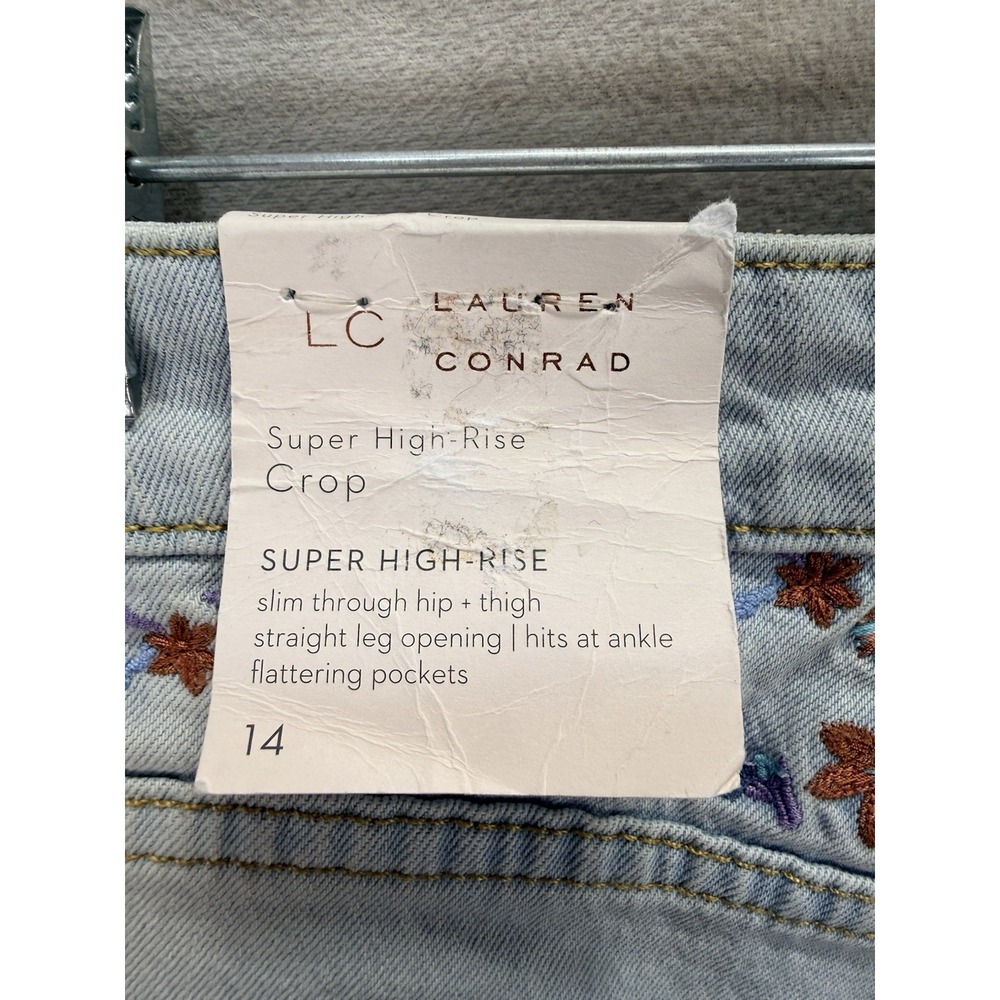 Super High Crop
LC LAUREN
CONRAD
Super High-Rise
Crop
SUPER HIGH-RISE
slim through hip + thigh
straight leg opening | hits at ankle
flattering pockets
14